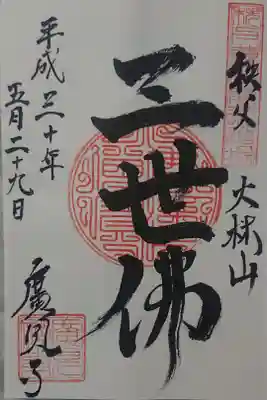 秩父
大林山
三世佛
平成三十年
五月二十九日
廣見寺